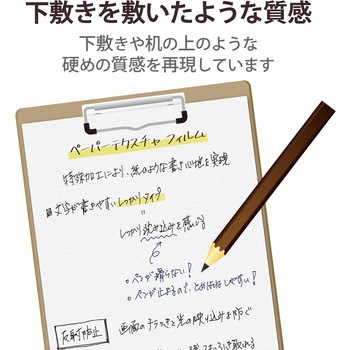 下敷きを敷いたような質感
下敷きや机の上のような
硬めの質感を再現しています
ペーパーテクスチャ フィルム
特殊加工により、紙のような書き心地を実現
文字が書きやすい しっかりタイプ
しっかり沈み込みを感じる
・ペンが滑らない!
・ペンが止まるので、とめはねしやすい!
反射防止
画面のチラつきと光の映り込みを防ぐ
取れる